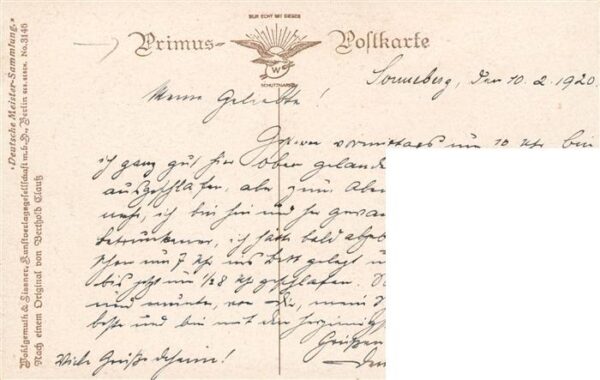 NUR ECHT MIT DIESER
Primus- Postkarte
W
SCHUTZMARKE
"Deutsche Meister-Sammlung."
Wohlgemuth & Lissner, Kunstverlagsgesellschaft m.b.H., Berlin No. 3146
Nach einem Original von Berthold Clauß
Sonneberg, den 10. 2. 1920
Meine Geliebte!
Gestern vormittags um 10 Uhr bin
ich ganz gut hier oben gelande
ausgeschlafen, aber zum Abe
ich bin hin und her
Betrunkener, ich hätte bald
schon um 7 Uhr ins Bett gelegt u
bis jetzt um 1/2 8 Uhr geschlafen.
und munter, von Dir, mein
hoffe und bin mit den herzinnigst
Grüßen
Dein
Viele Grüße daheim!